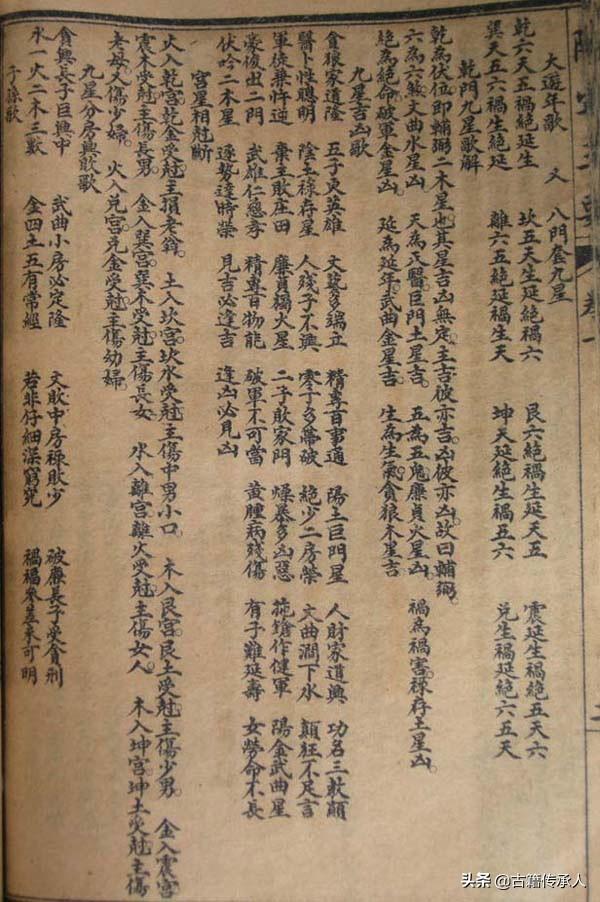 大遊年歌 又 八門套九星
乾六天五禍絶延生 坎五天生延絶禍六 艮六絶禍生延天五 震延生禍絶五天六
巽天五六禍生絶延 離六五絶延禍生天 坤天延絶生禍五六 兌生禍延絶六五天
乾門九星歌解
乾為伏位即輔弼二木星也其星吉凶無定主吉彼亦吉凶彼亦凶故曰輔弼
六為六煞文曲水星凶 天為天醫巨門土星吉 五為五鬼廉貞火星凶 禍為禍害祿存土星凶
絶為絶命破軍金星凶 延為延年武曲金星吉 生為生氣貪狼木星吉
九星吉凶歌
貪狼家道隆 五子更英雄 文藝多端立 精專百事通 陽土巨門星 人財家道興 功名三敕顯
醫卜性聰明 陰土祿存星 人殘子不興 零子多破 絶少二房榮 文曲澗下水 顛狂不足言
軍徒兼忤逆 棄主敗庄田 廉貞獨火星 二子敗家門 燥暴多凶惡 鎗作健軍 陽金武曲星
豪俊出二門 武雄仁慈孝 精專百物能 破軍不可當 黃腫病殘傷 有子難延壽 女勞命不長
伏吟二木星 逐勢達時榮 見吉必逢吉 逢凶必見凶
宮星相尅斷
火入乾宮乾金受尅主損老翁 土入坎宮坎水受尅主傷中男小口 木入艮宮艮土受尅主傷少男 金入震宮
震木受尅主傷長男 金入巽宮巽木受尅主傷長女 水入離宮離火受尅主傷女人 木入坤宮坤土受尅主傷
老母又傷少婦 火入兌宮兌金受尅主傷幼婦
九星分房興敗歌
貪興長子巨興中 武曲小房必定隆 文敗中房祿敗少 破廉長子受貧刑
水一火二木三數 金四土五有常經 若非仔細深窮究 禍福參差未可明
子孫歌
頭条 @古籍传承人